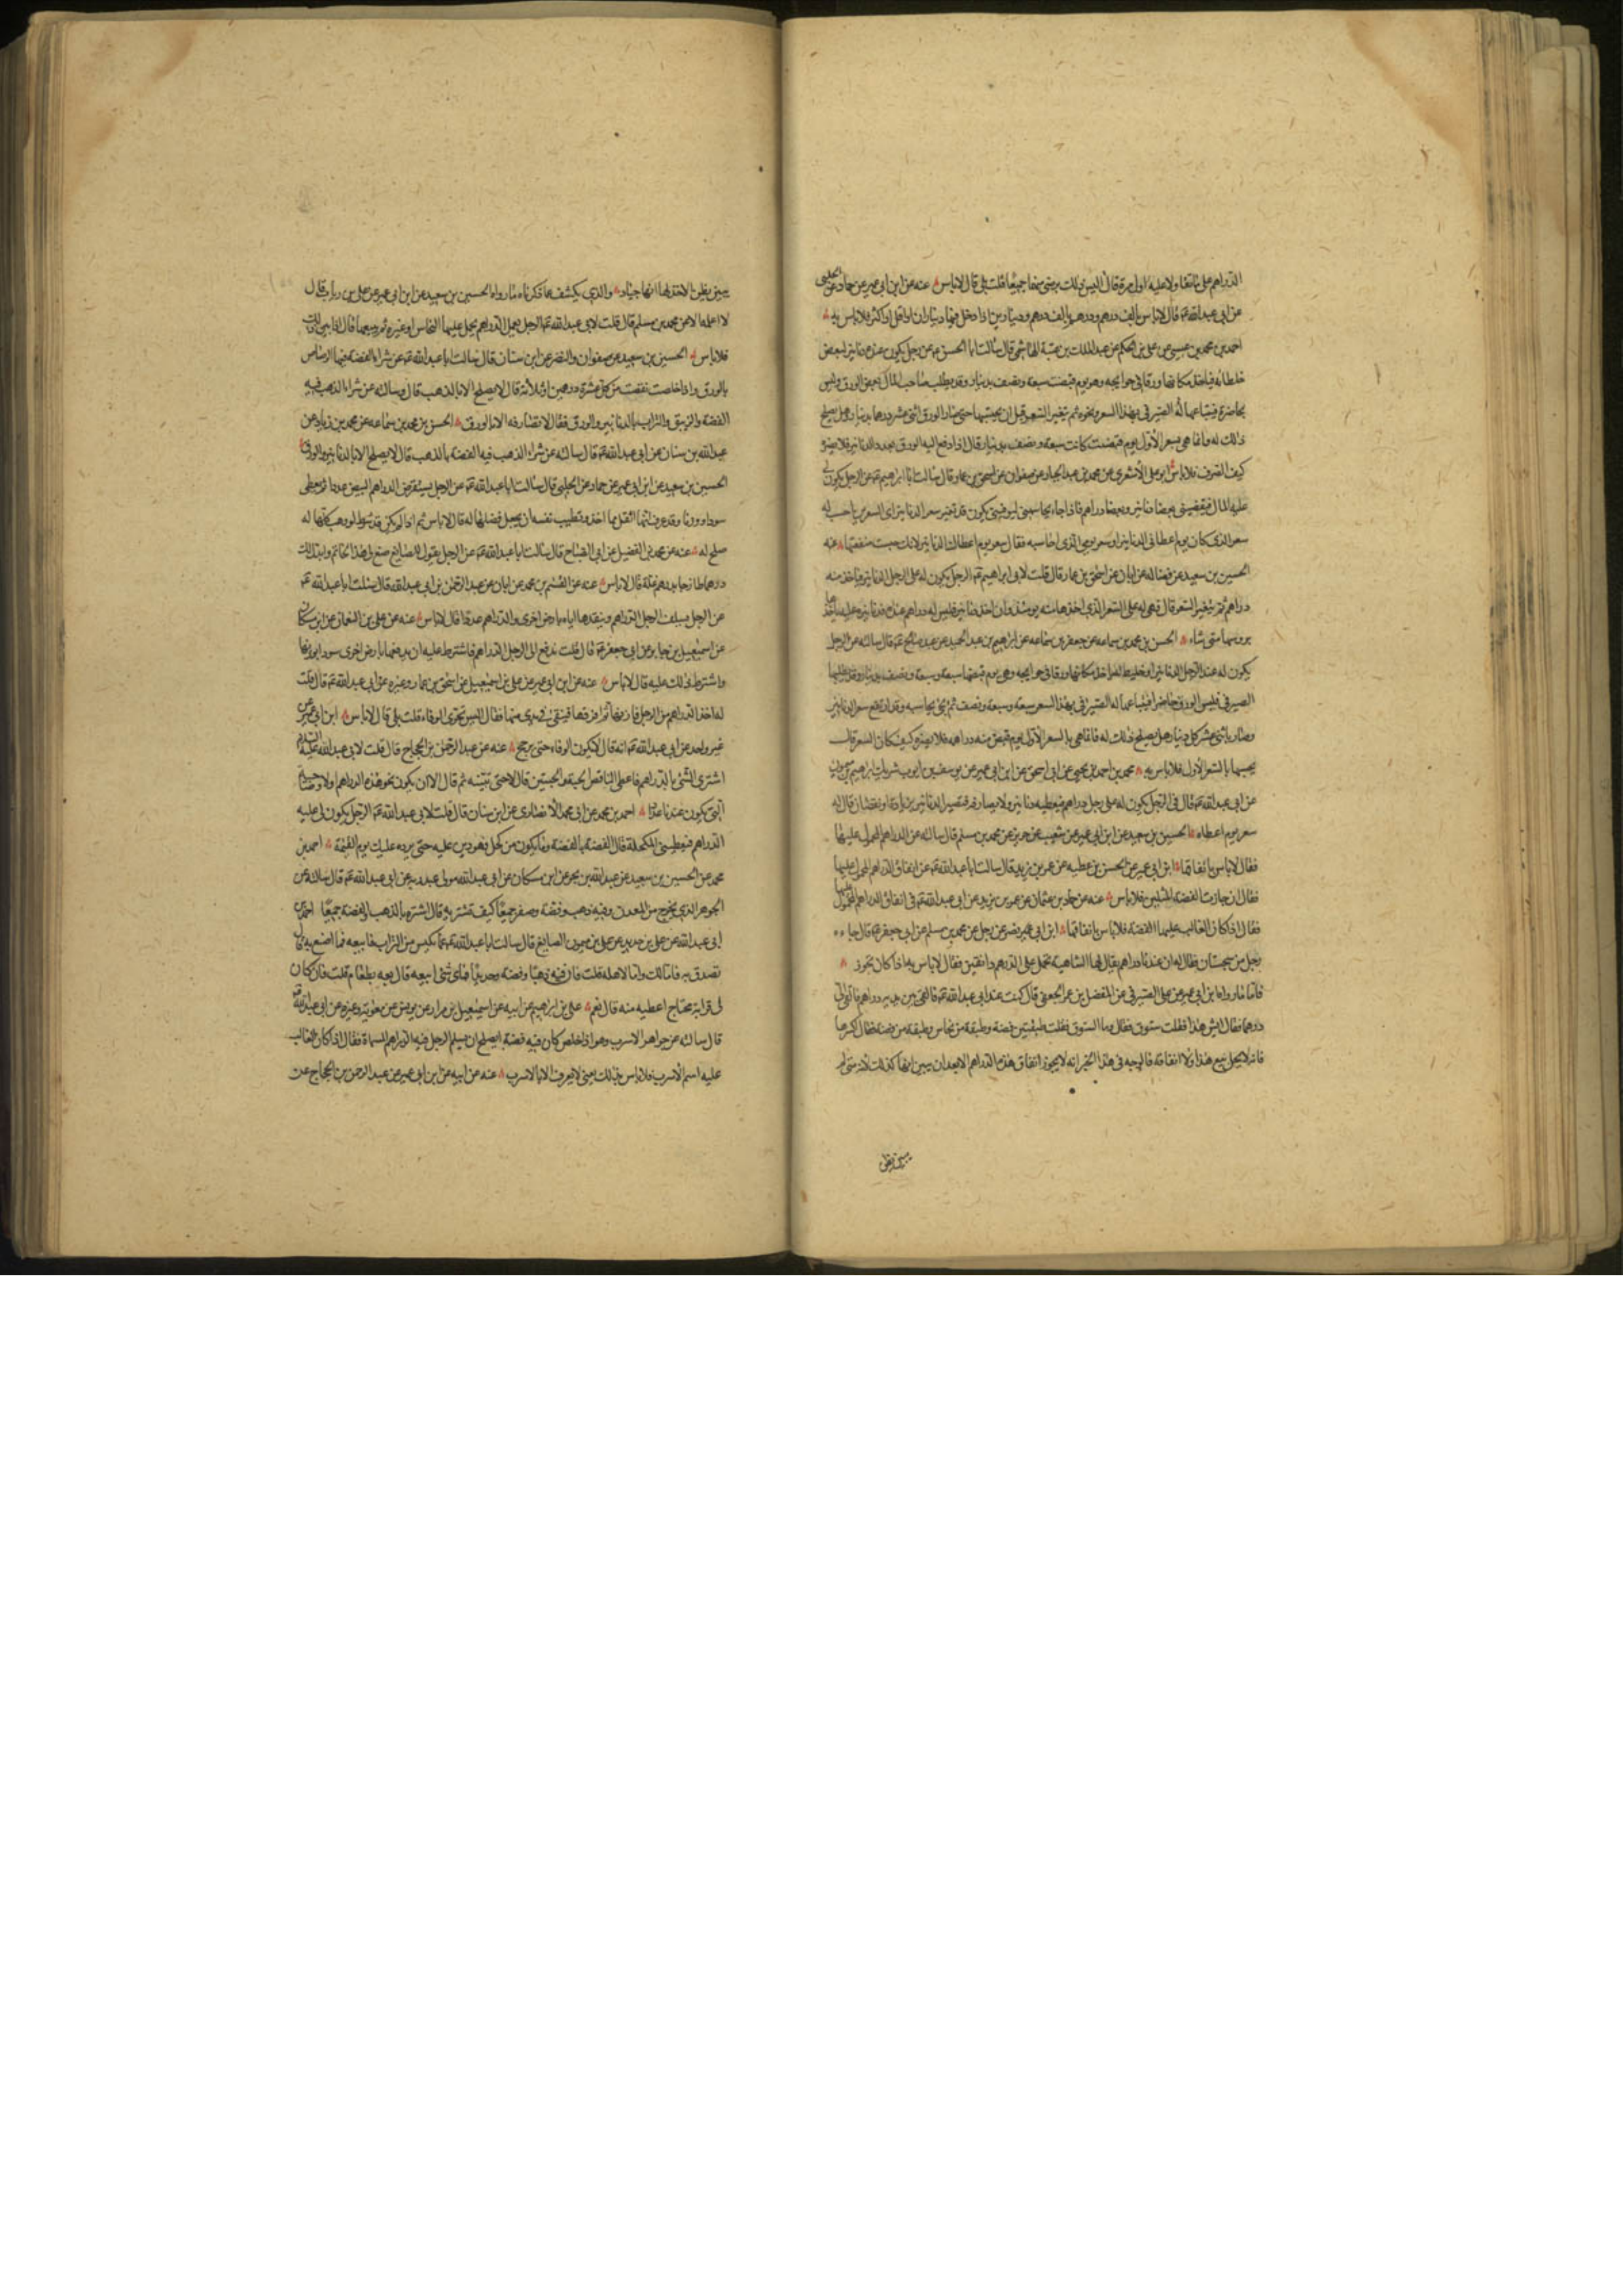 الدراهم على ما تقدا ولا عليه اول مرة قال اليس ذلك برضى منهما جميعا قلت بلى قال لا باس عنه عن ابن ابي عمير عن حماد عن الحلبي
عن ابي عبد الله ع قال لا باس بالف درهم ودرهم بالف درهم ودينارين اذا دخل فيها ديناران او اقل او اكثر فلا باس به
احمد بن محمد بن عيسى عن علي بن الحكم عن عبد الملك بن عتبة الهاشمي قال سالت ابا الحسن ع عن رجل يكون عنده دنانير لبعض
خلطائه فياخذ مكانها ورقا في حوايجه وهو يوم قبضت سبعة ونصف بدينار وقد يطلب صاحب المال بعض الورق وليس
بحاضرة فيبتاعها له الصيرفي بهذا السعر ونحوه ثم يتغير السعر قبل ان يحتسبها حتى صار الورق اثنى عشر درهما بدينار وهل يصلح
ذلك له وانما هي بسعر الاول يوم قبضت كانت سبعة ونصف بدينار قال اذا دفع اليه الورق بعدد الدنانير فلا يضره
كيف الصرف فلا باس ابو علي الاشعري عن محمد بن عبد الجبار عن صفوان عن اسحق بن عمار قال سالت ابا ابراهيم ع عن الرجل يكون لي
عليه المال فيقضيني بعضا دنانير وبعضا دراهم فاذا جاء يحاسبني ليوفيني يكون قد تغير سعر الدنانير اي السعرين احسب له
سعر الذي كان يوم اعطاني الدنانير او سعر يومي الذي احاسبه فقال سعر يوم اعطاك الدنانير لانك حبست منفعتها عنه
الحسين بن سعيد عن فضالة عن ابان عن اسحق بن عمار قال قلت لابي ابراهيم ع الرجل يكون له على الرجل الدنانير فياخذ منه
دراهم ثم يتغير السعر قال فهي له على السعر الذي اخذها منه يومئذ وان اخذ دنانير فليس له دراهم عنده فدنانيره عليه ياخذها
برؤسها متى شاء الحسن بن محمد بن سماعه عن جعفر بن سماعه عن ابراهيم بن عبد الحميد عن عبد صالح ع قال سالته عن الرجل
يكون له عند الرجل الدنانير او خليط له فياخذ مكانها ورقا في حوايجه وهي يوم قبضها سبعة وسبعة ونصف بدينار وقد يطلبها
الصيرفي فليس الورق حاضرا فيبتاعها له الصيرفي بهذا السعر سبعة وسبعة ونصف ثم يجئ يحاسبه وقد ارتفع سعر الدنانير
وصار باثنى عشر كل دينار هل يصلح ذلك له فانما هي بالسعر الاول يوم قبض منه دراهمه فلا يضره كيف كان السعر قال
يحسبها بالسعر الاول فلا باس به محمد بن احمد بن يحيى عن ابي اسحق عن ابن ابي عمير عن يوسف بن ايوب شريك ابراهيم بن ميمون
عن ابي عبد الله ع قال في الرجل يكون له على رجل دراهم فيعطيه دنانير ولا يصارفه فتصير الدنانير بزيادة او نقصان قال له
سعر يوم اعطاه الحسين بن سعيد عن ابن ابي عمير عن شعيب عن حريز عن محمد بن مسلم قال سالته عن الدراهم المحمول عليها
فقال لا باس بانفاقها ابن ابي عمير عن الحسن بن عطيه عن عمر بن يزيد قال سالت ابا عبد الله ع عن انفاق الدراهم المحمول عليها
فقال ان جازت الفضة المثلين فلا باس عنه عن حماد بن عثمان عن عمر بن يزيد عن ابي عبد الله ع في انفاق الدراهم المحمول عليها
فقال اذا كان الغالب عليها الفضة فلا باس بانفاقها ابن ابي عمير عن رجل عن محمد بن مسلم عن ابي جعفر ع قال جاءه
رجل من سجستان فقال له ان عندنا دراهم يقال لها الشاهية تحمل على الدرهم دانقين فقال لا باس به اذا كان تجوز
فاما ما رواه ابن ابي عمير عن علي الصيرفي عن المفضل بن عمر الجعفي قال كنت عند ابي عبد الله ع فالقي بين يديه دراهم فالقى الي
درهما فقال ايش هذا فقلت ستوق فقال وما الستوق فقلت طبقتين فضة وطبقة من نحاس وطبقة من فضة فقال اكسرها
فانه لا يحل بيع هذا ولا انفاقه فالوجه في هذا الخبر انه لا يجوز انفاق هذه الدراهم الا بعد ان يبين انها كذلك لانه متى لم
يبين يظن
يبين يظن الاخذ لها انها جياد والذي يكشف عما ذكرناه ما رواه الحسين بن سعيد عن ابن ابي عمير عن علي بن رياب قال
لا اعلمه الا عن محمد بن مسلم قال قلت لابي عبد الله ع الرجل يعمل الدراهم يحمل عليها النحاس او غيره ثم يبيعها قال اذا بين ذلك
فلا باس الحسين بن سعيد عن صفوان والنضر عن ابن سنان قال سالت ابا عبد الله ع عن شراء الفضة فيها الرصاص
بالورق واذا خلصت نقصت من كل عشرة درهمين او ثلاثة قال لا يصلح الا بالذهب قال وسالته عن شراء الذهب فيه
الفضة والزيبق والتراب بالدنانير والورق فقال لا تصارفه الا بالورق الحسن بن محمد بن سماعه عن محمد بن زياد عن
عبد الله بن سنان عن ابي عبد الله ع قال سالته عن شراء الذهب فيه الفضة بالذهب قال لا يصلح الا بالدنانير والورق
الحسين بن سعيد عن ابن ابي عمير عن حماد عن الحلبي قال سالت ابا عبد الله ع عن الرجل يستقرض الدراهم البيض عددا ثم يعطي
سودا وزنا وقد عرف انها اثقل مما اخذ وتطيب نفسه ان يجعل فضلها له قال لا باس ثم اذا لم يكن فيه شرط لو وهبها كلها له
صلح له عنه عن محمد بن الفضيل عن ابي الصباح قال سالت ابا عبد الله ع عن الرجل يقول للصايغ صغ لي هذا الخاتم وابدل لك
درهما طازجا بدرهم غلة قال لا باس عنه عن القسم بن محمد عن ابان عن عبد الرحمن بن ابي عبد الله قال سئلت ابا عبد الله ع
عن الرجل يسلف الرجل الدراهم وينقدها اياه بارض اخرى والدراهم عددا قال لا باس عنه عن علي بن النعمان عن ابن مسكان
عن اسمعيل بن جابر عن ابي جعفر ع قال قلت ندفع الى الرجل الدراهم فاشترط عليه ان يدفعها بارض اخرى سودا بوزنها
واشترط ذلك عليه قال لا باس عنه عن ابن ابي عمير عن علي بن اسمعيل عن اسحق بن عمار وغيره عن ابي عبد الله ع قال قلت
له اخذ الدراهم من الرجل فازنها ثم افرقها فيبقى في يدي منها فقال اليس تحرى الوفاء قلت بلى قال لا باس ابن ابي عمير عن
غير واحد عن ابي عبد الله ع انه قال لا يكون الوفاء حتى يرجح عنه عن عبد الرحمن بن الحجاج قال قلت لابي عبد الله عليه السلام
اشترى الشئ بالدراهم فاعطى الناقص الحبة والحبتين قال لا حتى تبينه ثم قال الا ان يكون نحو هذه الدراهم الاوضاحية
التي تكون عندنا عددا احمد بن محمد عن ابي محمد الانصارى عن ابن سنان قال قلت لابي عبد الله ع الرجل يكون لي عليه
الدراهم فيعطيني المكحلة فقال الفضة بالفضة وما يكون من كحل فهو دين عليه حتى يرده عليك يوم القيمة احمد بن
محمد عن الحسين بن سعيد عن عبد الله بن بحر عن ابن مسكان عن ابي عبد الله مولى عبد ربه عن ابي عبد الله ع قال سالته عن
الجوهر الذي يخرج من المعدن وفيه ذهب وفضة وصفر جميعا كيف نشتريه قال اشتره بالذهب والفضة جميعا احمد بن
ابي عبد الله عن علي بن حديد عن علي بن ميمون الصايغ قال سالت ابا عبد الله ع عما يكنس من التراب فابيعه فما اصنع به قال
تصدق به فاما لك واما لاهله قلت فان فيه ذهبا وفضة وحديدا فباي شئ ابيعه قال بعه بطعام قلت فان كان
لي قرابة محتاج اعطيه منه قال نعم علي بن ابراهيم عن ابيه عن اسمعيل بن مرار عن يونس عن معوية وغيره عن ابي عبد الله ع
قال سالته عن جواهر الاسرب وهو اذا خلص كان فيه فضة ايصلح ان يسلم الرجل فيه الدراهم المسماة فقال اذا كان الغالب
عليه اسم الاسرب فلا باس بذلك يعني لا يعرف الا بالاسرب عنه عن ابيه عن ابن ابي عمير عن عبد الرحمن بن الحجاج عن